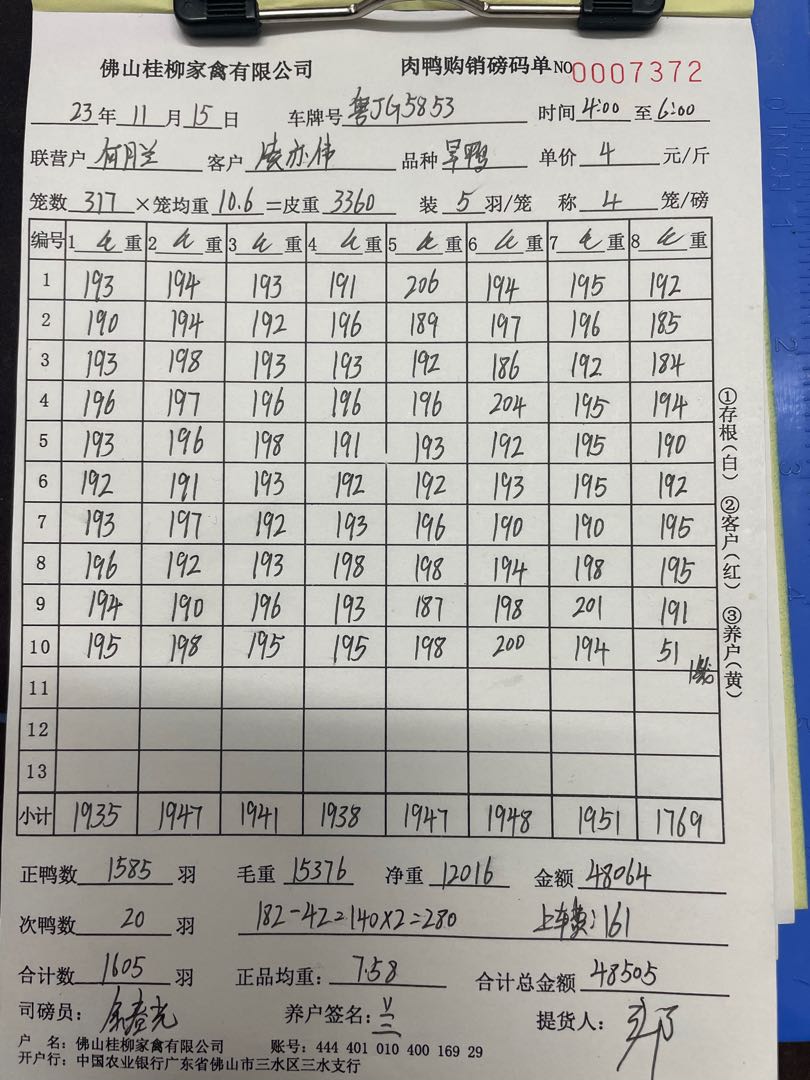 佛山桂柳家禽有限公司 肉鸭购销磅码单 NO 0007372
23年 11月 15日 车牌号 粤JG5853 时间 4:00 至 6:00
联营户 何月兰 客户 凌亦伟 品种 旱鸭 单价 4 元/斤
笼数 317 ×笼均重 10.6 =皮重 3360 装 5 羽/笼 称 4 笼/磅
编号 1 毛重 2 毛重 3 毛重 4 毛重 5 毛重 6 毛重 7 毛重 8 毛重
1 193 194 193 191 206 194 195 192
2 190 194 192 196 189 197 196 185
3 193 198 193 193 192 186 192 184
4 196 197 196 196 196 204 195 194
5 193 196 198 191 193 192 195 190
6 192 191 193 192 192 193 195 192
7 193 197 192 193 196 190 190 195
8 196 192 193 198 198 194 198 195
9 194 190 196 193 187 198 201 191
10 195 198 195 195 198 200 194 51
11
12
13
小计 1935 1947 1941 1938 1947 1948 1951 1769
①存根(白) ②客户(红) ③养户(黄)
正鸭数 1585 羽 毛重 15376 净重 12016 金额 48064
次鸭数 20 羽 182-42=140×2=280 上车费:161
合计数 1605 羽 正品均重: 7.58 合计总金额 48505
司磅员: 养户签名: 提货人:
户 名: 佛山桂柳家禽有限公司 账号: 444 401 010 400 169 29
开户行: 中国农业银行广东省佛山市三水区三水支行